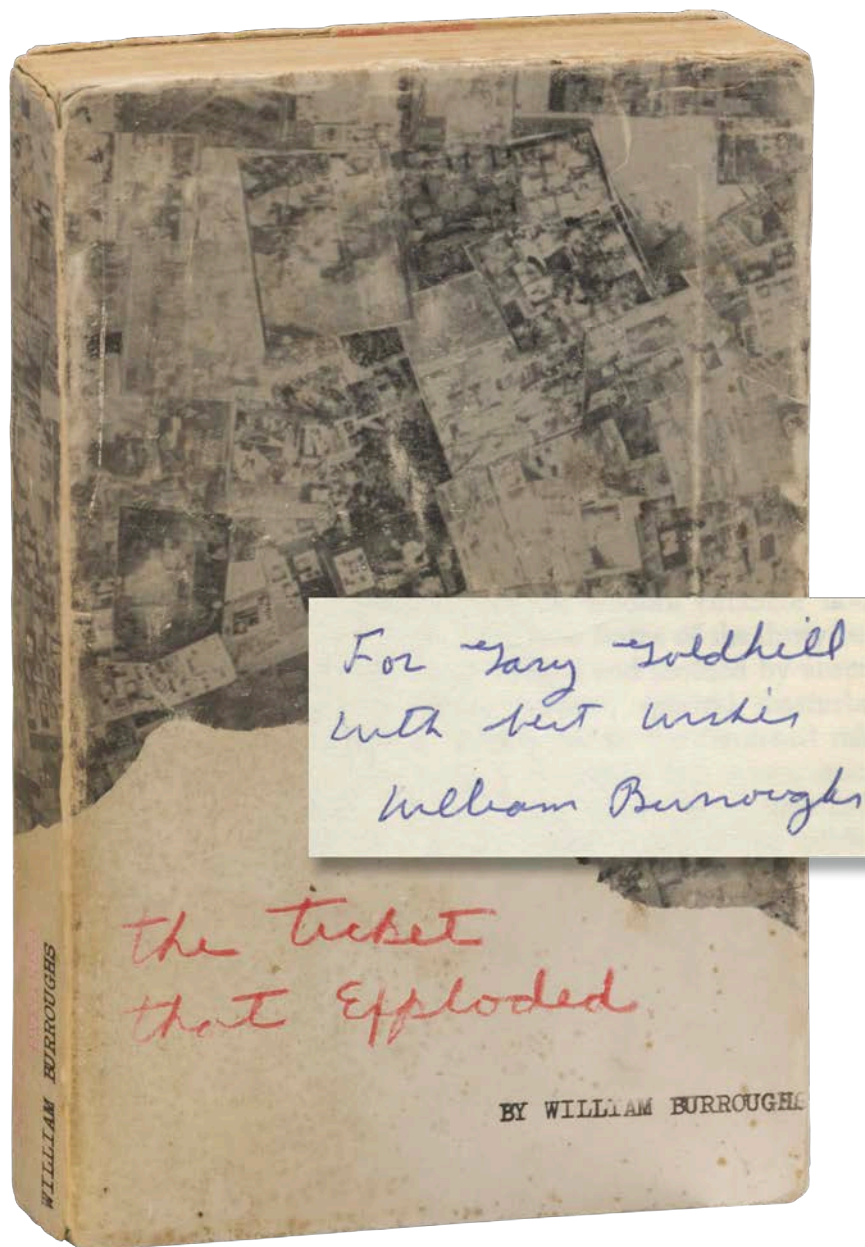 For Gary Goldhill
with best wishes
William Burroughs
the ticket
that Exploded
BY WILLIAM BURROUGHS
WILLIAM BURROUGHS